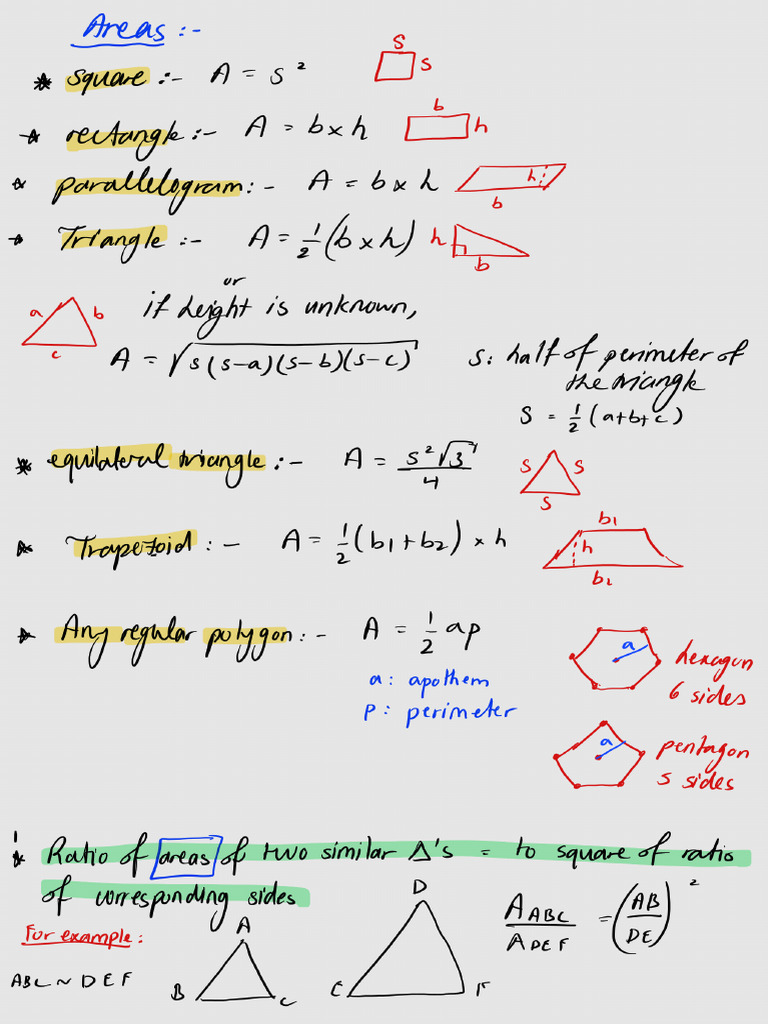 Areas :-
* square :- A = s²
s
s
* rectangle :- A = b × h
b
h
* parallelogram :- A = b × h
h
b
* Triangle :- A = 1/2 (b × h)
h
b
or
if height is unknown,
a
b
c
A = √s(s-a)(s-b)(s-c)
s: half of perimeter of
the triangle
S = 1/2 (a+b+c)
* equilateral triangle :- A = s²√3/4
s
s
s
* Trapezoid :- A = 1/2 (b1 + b2) × h
b1
h
b2
* Any regular polygon :- A = 1/2 ap
a: apothem
p: perimeter
a
hexagon
6 sides
a
pentagon
5 sides
* Ratio of areas of two similar Δ's = to square of ratio
of corresponding sides
For example:
ABC ~ DEF
A
B
C
D
E
F
A ABC / A DEF = (AB/DE)²